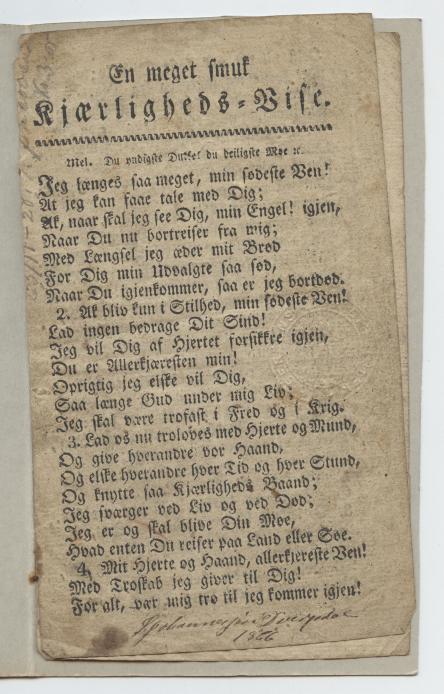 En meget smuk
Kjærligheds-Vise.
Mel. Du yndigste Dukke! du deiligste Moe ꝛc.
Jeg længes saa meget, min sødeste Ven!
At jeg kan faae tale med Dig;
Ak, naar skal jeg see Dig, min Engel! igjen,
Naar Du nu bortreiser fra mig;
Med Længsel jeg æder mit Brød
For Dig min Udvalgte saa sød,
Naar Du igjenkommer, saa er jeg bortdød.
2. Ak bliv kun i Stilhed, min sødeste Ven!
Lad ingen bedrage Dit Sind!
Jeg vil Dig af Hjertet forsikkre igjen,
Du er Allerkjæresten min!
Oprigtig jeg elske vil Dig,
Saa længe Gud under mig Liv;
Jeg skal være trofast i Fred og i Krig.
3. Lad os nu troloves med Hjerte og Mund,
Og give hverandre vor Haand,
Og elske hverandre hver Tid og hver Stund,
Og knytte saa Kjærligheds Baand;
Jeg sværger ved Liv og ved Død;
Jeg er og skal blive Din Moe,
Hvad enten Du reiser paa Land eller Søe.
4. Mit Hjerte og Haand, allerkjereste Ven!
Med Troskab jeg giver til Dig!
For alt, vær mig tro til jeg kommer igjen!
1866